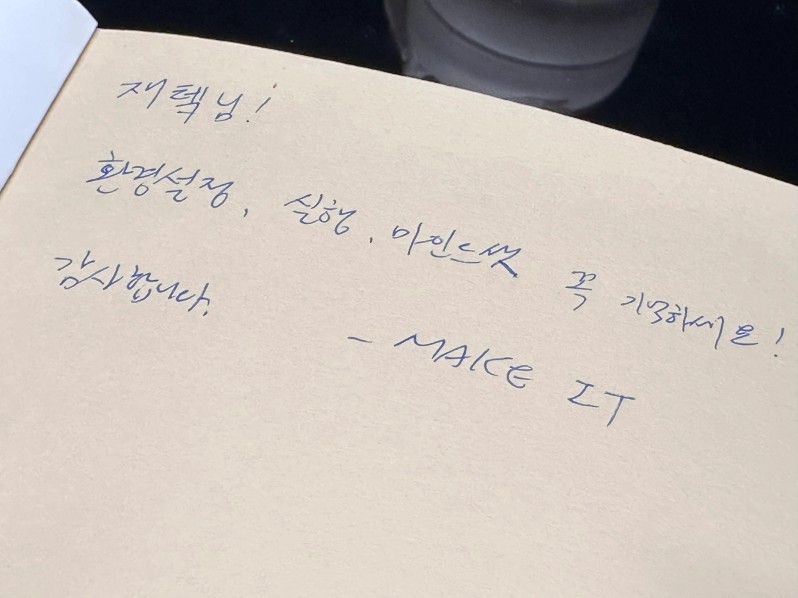 재텍님!
환경설정, 실행, 마인드셋 꼭 기억하세요!
감사합니다.
- MAKE IT